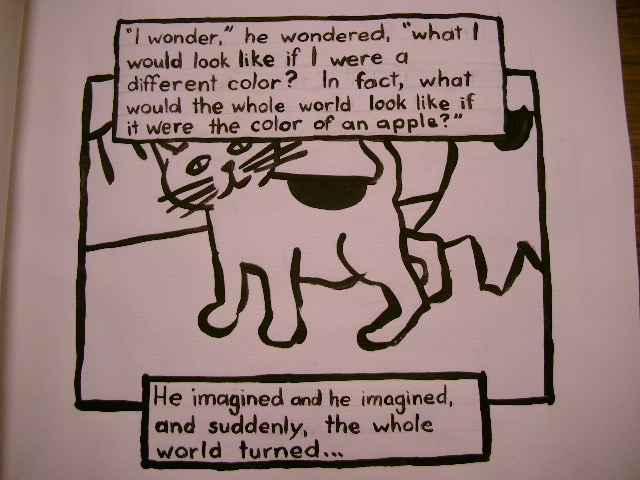 "I wonder," he wondered, "what I
would look like if I were a
different color? In fact, what
would the whole world look like if
it were the color of an apple?"
He imagined and he imagined,
and suddenly, the whole
world turned...